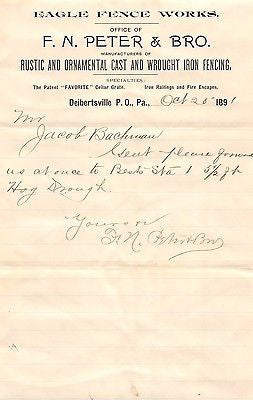 EAGLE FENCE WORKS,
OFFICE OF
F. N. PETER & BRO.
MANUFACTURERS OF
RUSTIC AND ORNAMENTAL CAST AND WROUGHT IRON FENCING.
SPECIALTIES:
The Patent "FAVORITE" Cellar Grate. Iron Railings and Fire Escapes.
Deibertsville P. O., Pa., Oct 20 1891
Mr
Jacob Bachman
Gent please
us at once to Best Sta 1 5/2 ft
Hog Trough
Yours
F. N. Peter & Bro